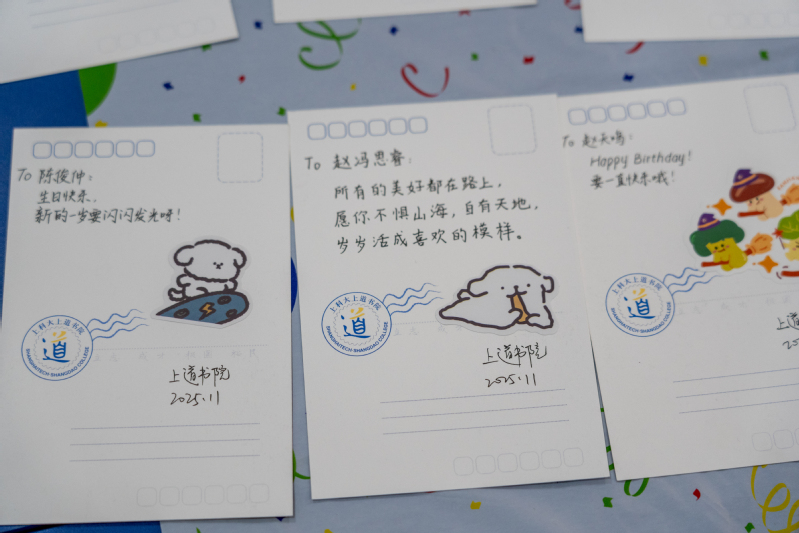 To 陈俊仲：
生日快乐，
新的一岁要闪闪发光呀！
上科大上道书院
道
SHANGHAITECH·SHANGDAO COLLEGE
上道书院
2025.11
To 赵冯思睿：
所有的美好都在路上，
愿你不惧山海，自有天地，
岁岁活成喜欢的模样。
上科大上道书院
道
SHANGHAITECH·SHANGDAO COLLEGE
上道书院
2025.11
To 赵天鸣：
Happy Birthday！
要一直快乐哦！
上科大上道书院
道
SHANGHAITECH·SHANGDAO COLLEGE
上道